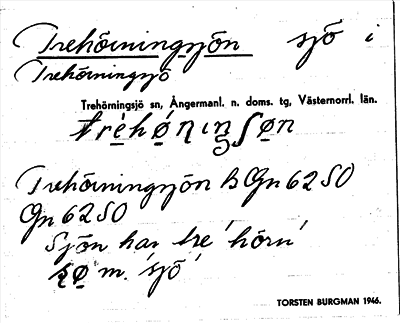 Trehörningsjön sjö i
Trehörningsjö
Trehörningsjö sn, Ångermanl. n. doms. tg, Västernorrl. län.
Trehörningsjön B Gn 62 SO
Gn 62 SO
Sjön har tre 'hörn'
m. 'sjö'
TORSTEN BURGMAN 1946.